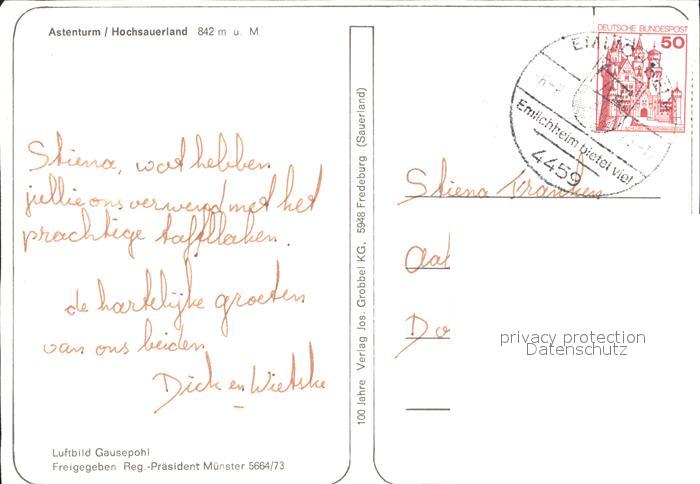 Astenturm / Hochsauerland 842 m ü. M
Stiena, wat hebben
jullie ons verwend met het
prachtige taffllaken.
de hartelijke groeten
van ons beiden
Dick en Wietske
Luftbild Gausepohl
Freigegeben Reg.-Präsident Münster 5664/73
100 Jahre Verlag Jos. Grobbel KG, 5948 Fredeburg (Sauerland)
DEUTSCHE BUNDESPOST
50
Emlichheim bietet viel
4459
Stiena Franken
Aal
Do
privacy protection
Datenschutz